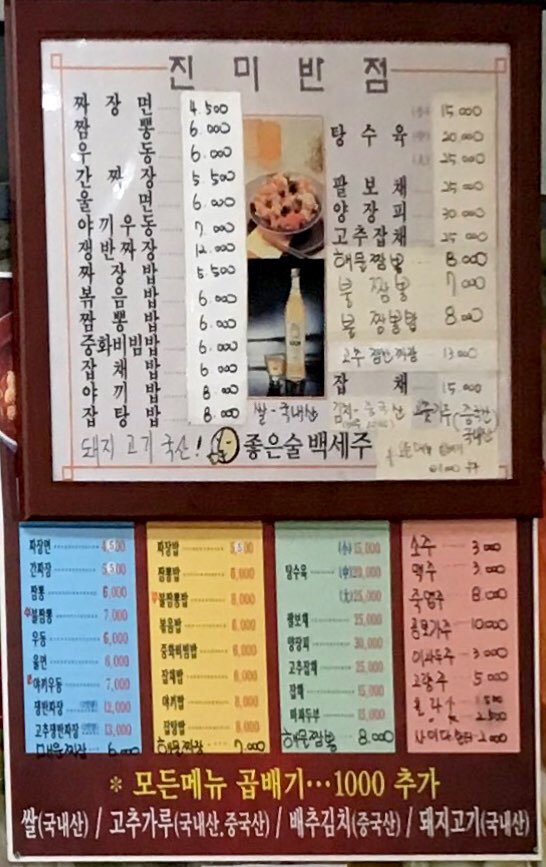 진미반점
짜장면 4.500
짬뽕 6.000
우동 6.000
간짜장 5.500
울면 6.000
야끼우동 7.000
쟁반짜장 12.000
짜장밥 5.500
볶음밥 6.000
짬뽕밥 6.000
중화비빔밥 6.000
잡채밥 6.000
야끼밥 8.000
잡탕밥 8.000
탕수육 (小) 15.000
(中) 20.000
(大) 25.000
팔보채 25.000
양장피 30.000
고추잡채 25.000
해물짬뽕 8.000
불짬뽕 7.000
불짬뽕밥 8.000
고추쟁반짜장 13.000
잡채 15.000
쌀-국내산
돼지고기국산!
좋은술 백세주
짜장면 4,500
간짜장 5,500
짬뽕 6,000
불짬뽕 7,000
우동 6,000
울면 6,000
야끼우동 7,000
쟁반짜장 12,000
고추쟁반짜장 13,000
매운짜장 6.000
짜장밥 5,500
짬뽕밥 6,000
불짬뽕밥 8,000
볶음밥 6,000
중화비빔밥 6,000
잡채밥 6,000
야끼밥 8,000
잡탕밥 8,000
해물짜장 7.000
탕수육 (小)15,000
(中)20,000
(大)25,000
팔보채 25,000
양장피 30,000
고추잡채 25,000
잡채 15,000
마파두부 15,000
해물짬뽕 8.000
소주 3.000
맥주 3.000
죽엽주 8.000
공부가주 10.000
이과두주 3.000
고량주 5.000
환타 1.500
사이다 2.000
* 모든메뉴 곱배기…1000 추가
쌀(국내산) / 고추가루(국내산.중국산) / 배추김치(중국산) / 돼지고기(국내산)